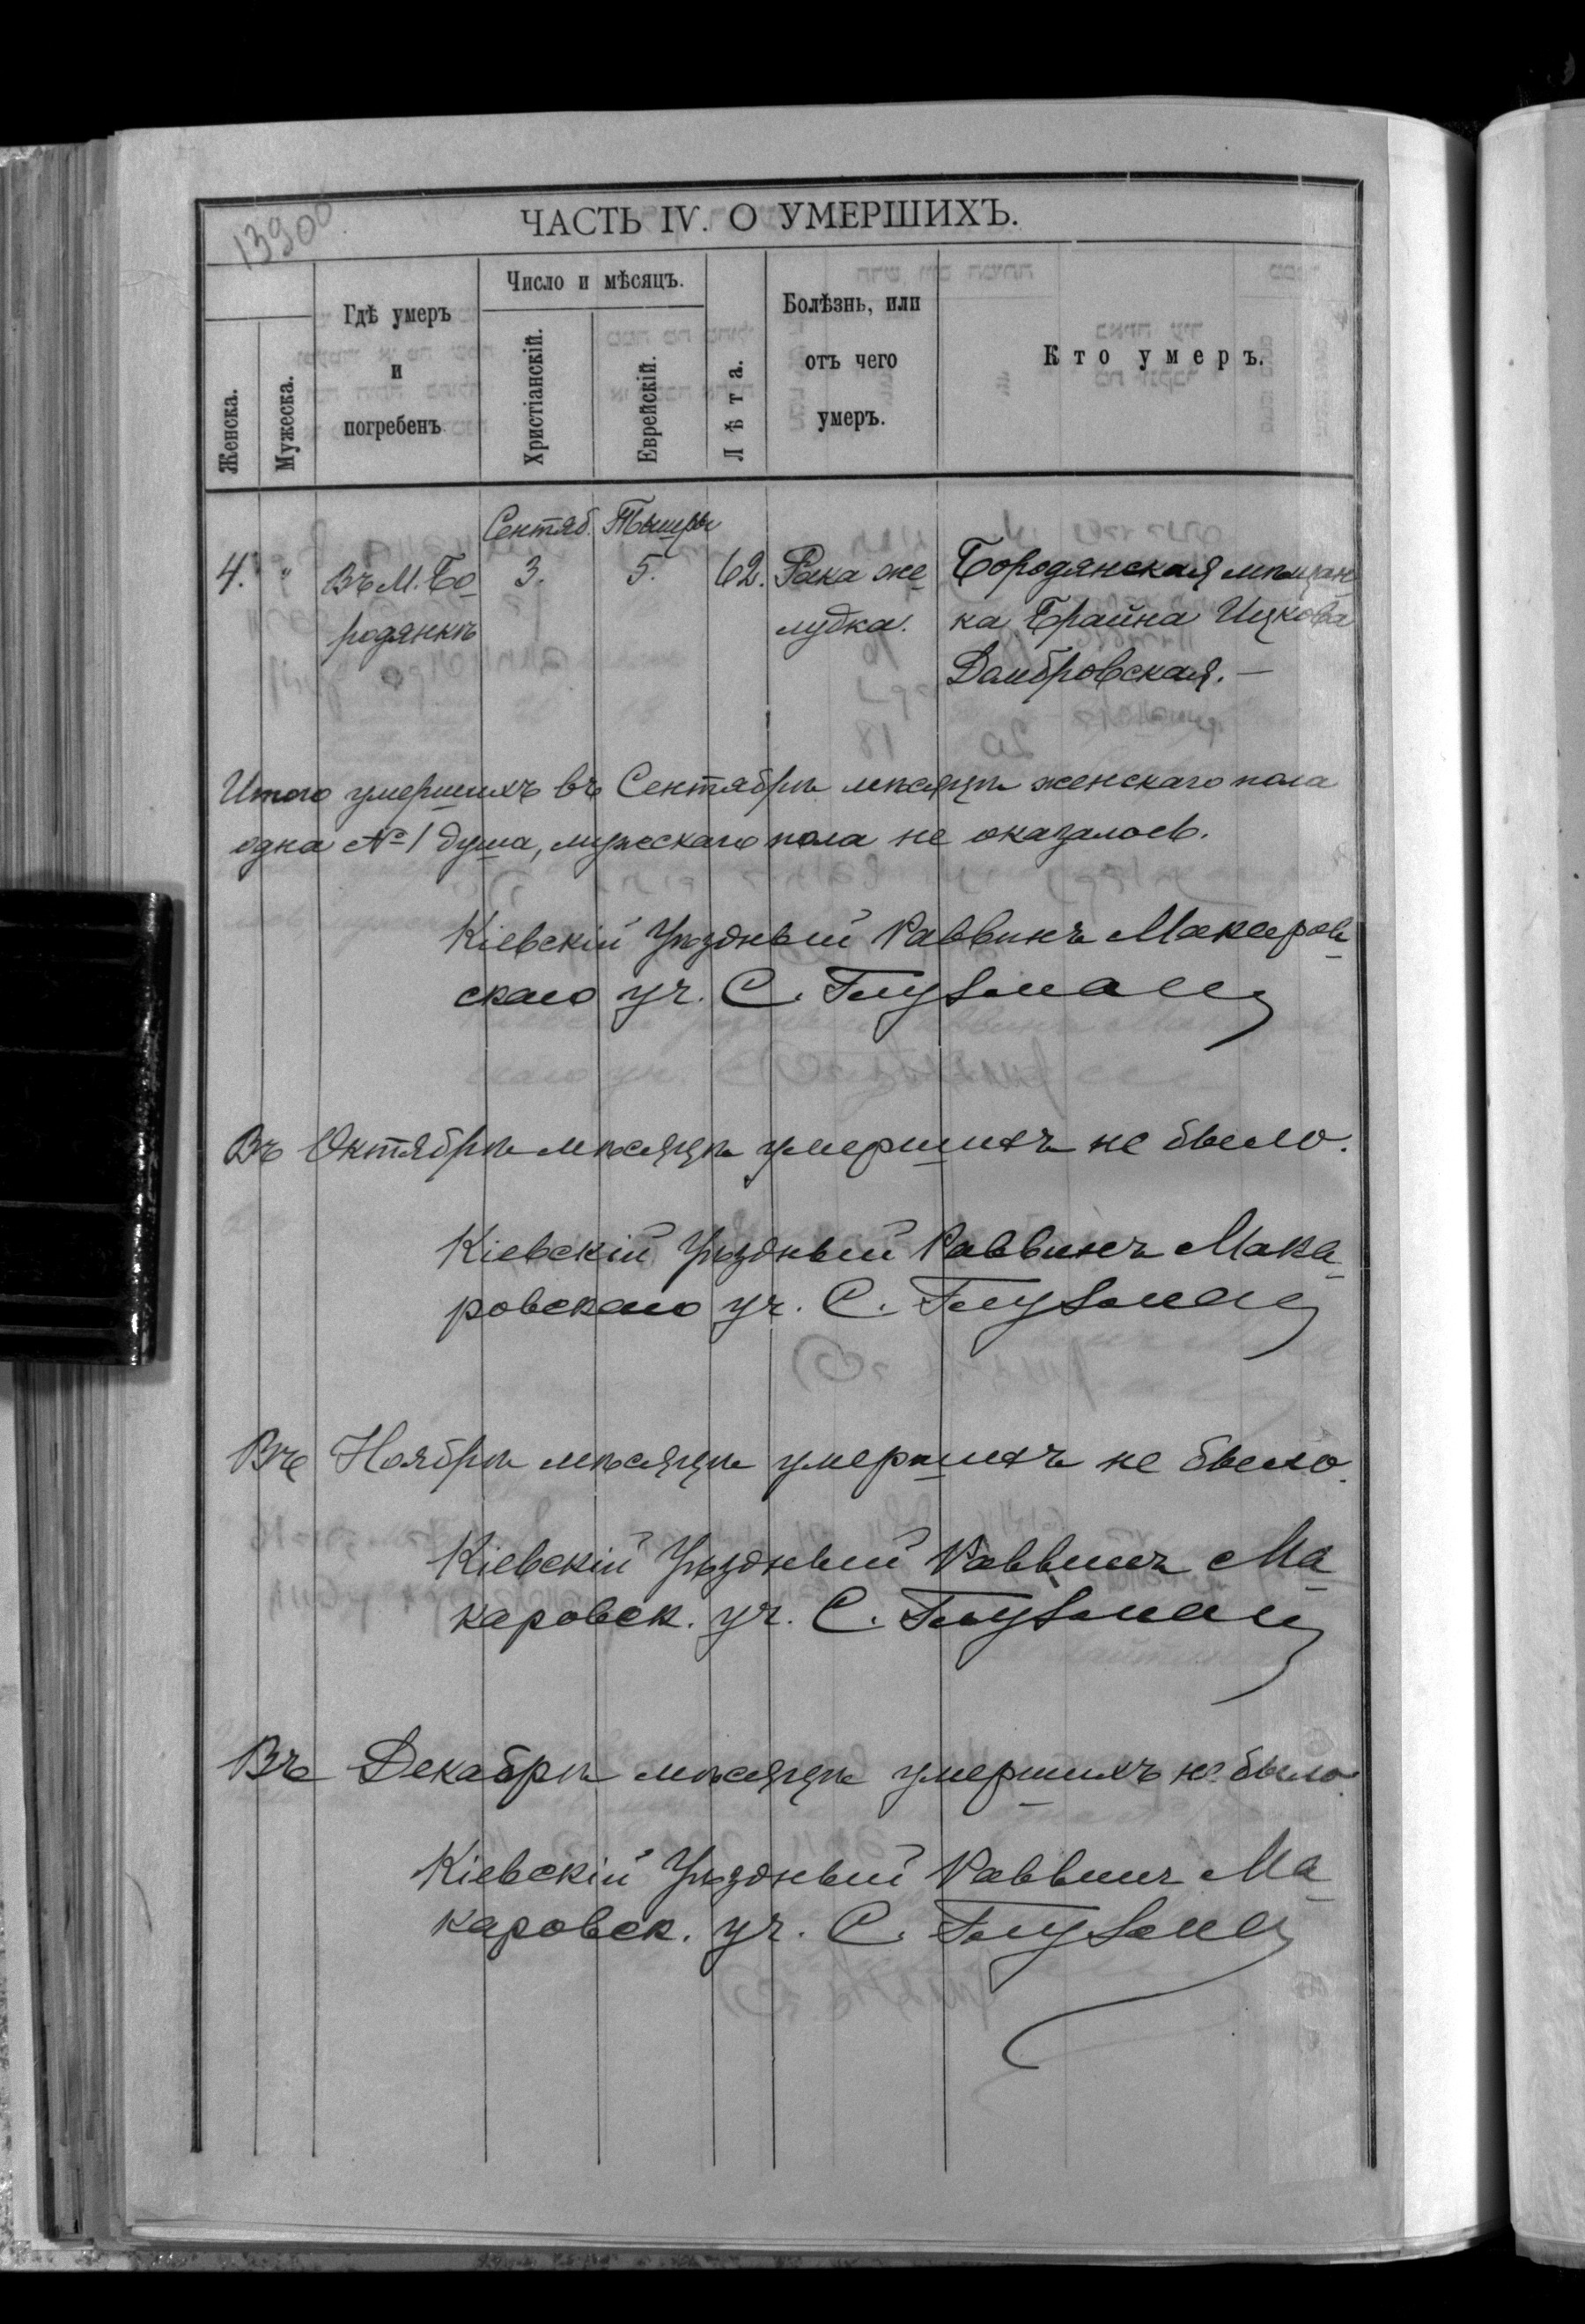 13900
ЧАСТЬ IV. О УМЕРШИХЪ.
Женска.
Мужеска.
Гдѣ умеръ
и
погребенъ
Число и мѣсяцъ.
Христіанскій.
Еврейскій.
Лѣта.
Болѣзнь, или
отъ чего
умеръ.
Кто умеръ.
Сентяб. Тишры
4. " Въ М. Бо- 3. 5. 62. Рака же- Бородянская мѣщан-
родянкѣ лудка. ка Брайна Ицкова
Домбровская. —
Итого умершихъ въ Сентябрѣ мѣсяцѣ женскаго пола
одна № 1 душа, мужескаго пола не оказалось.
Кіевскій Уѣздный Раввинъ Макаров-
скаго уч. С. Глузманъ
Въ Октябрѣ мѣсяцѣ умершихъ не было.
Кіевскій Уѣздный Раввинъ Мака-
ровскаго уч. С. Глузманъ
Въ Ноябрѣ мѣсяцѣ умершихъ не было.
Кіевскій Уѣздный Раввинъ Ма-
каровск. уч. С. Глузманъ
Въ Декабрѣ мѣсяцѣ умершихъ не было
Кіевскій Уѣздный Раввинъ Ма-
каровск. уч. С. Глузманъ